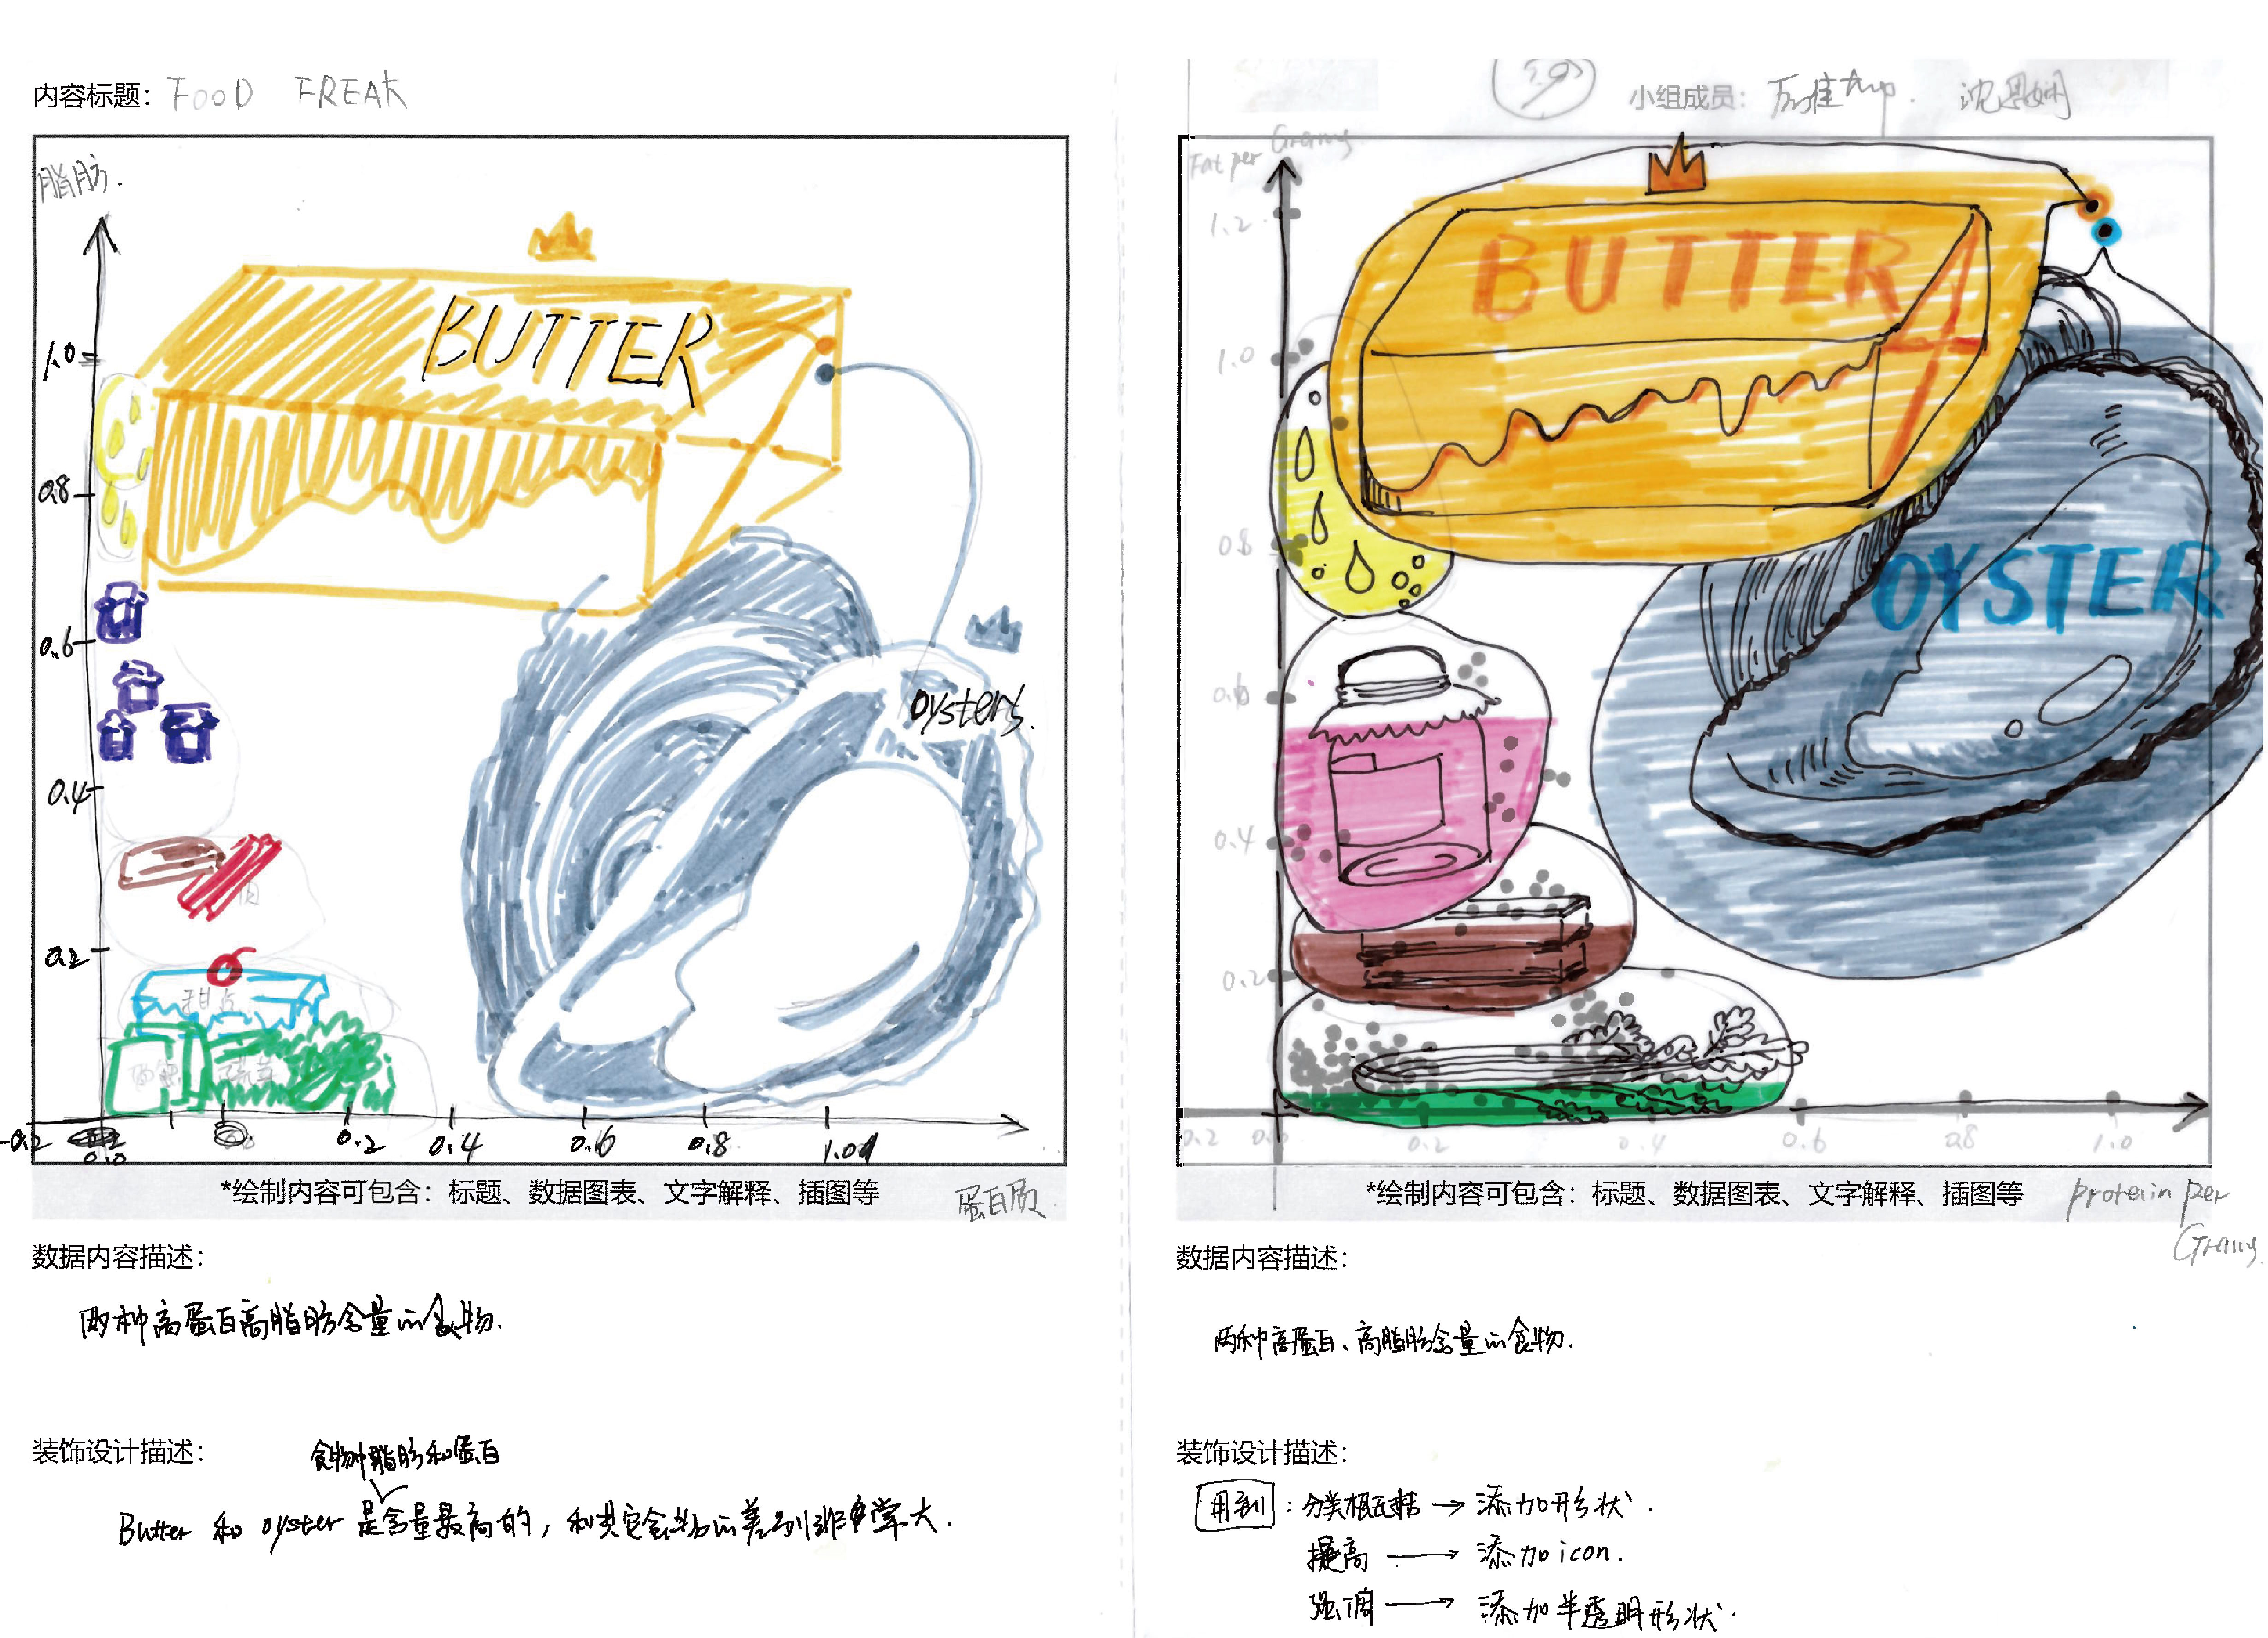 内容标题：FOOD FREAK
脂肪.
BUTTER
1.0
0.8
0.6
oysters.
0.4
0.2
甜点
蔬菜
-0.2
0.0
0.2
0.4
0.6
0.8
1.0
*绘制内容可包含：标题、数据图表、文字解释、插图等
蛋白质
数据内容描述：
两种高蛋白高脂肪含量的食物.
装饰设计描述：
食物中脂肪和蛋白
Butter 和 oyster 是含量最高的，和其它食物的差别非常大.
小组成员：
Fat per Grams
1.2
BUTTER
1.0
0.8
OYSTER
0.6
0.4
0.2
0.2
0.0
0.2
0.4
0.6
0.8
1.0
*绘制内容可包含：标题、数据图表、文字解释、插图等
protein per
Grams
数据内容描述：
两种高蛋白、高脂肪含量的食物.
装饰设计描述：
用到：分类概括 → 添加形状.
提高 → 添加icon.
强调 → 添加半透明形状.